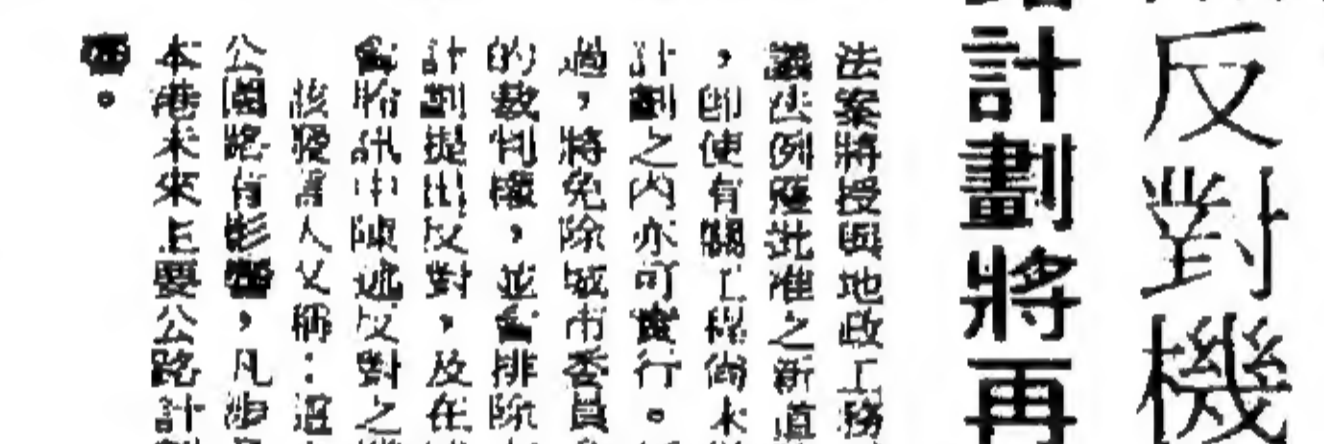 反對機
計劃將再
法案將授與地政工務
議法例獲批准之新道
，即使有關工程尚未
計劃之內亦可實行。
過，將免除城市委員
的裁判權，並會排除
計劃提出反對，及在
會聆訊中陳述反對之
該發言人又稱：這
公園路有影響，凡涉
本港未來主要公路計
。